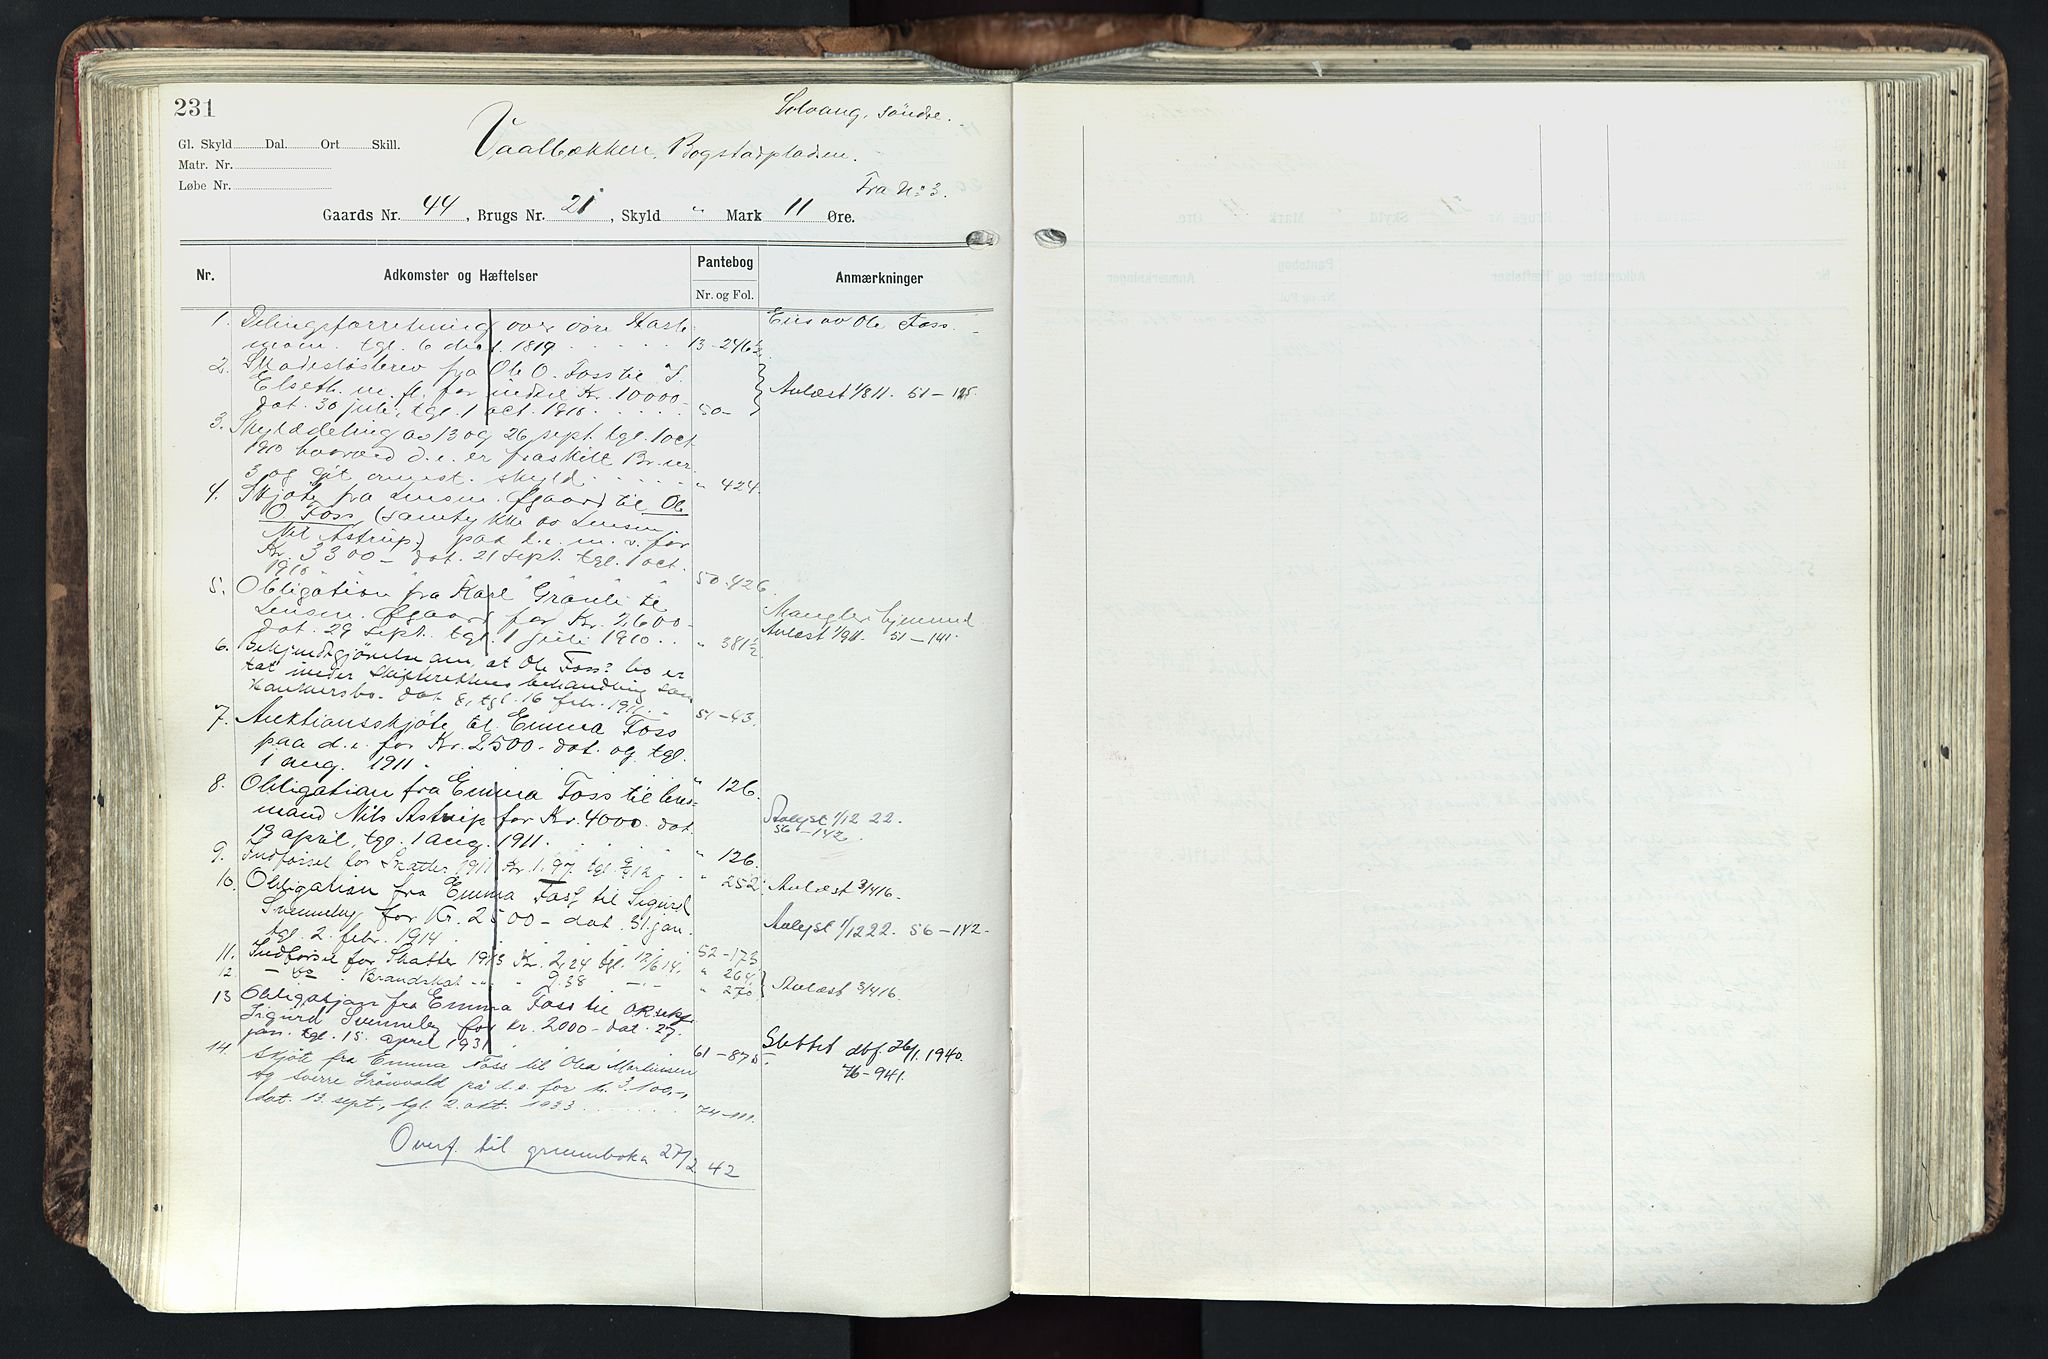 231
Solvang, søndre.
Gl. Skyld Dal. Ort Skill.
Vaalbækken, Bogstadpladsen.
Matr. Nr.
Løbe Nr.
Fra No 3.
Gaards Nr. 44, Brugs Nr. 21, Skyld " Mark 11 Øre.
Nr. Adkomster og Hæftelser Pantebog Anmærkninger
Nr. og Fol.
1. Delingsforretning over
tgl. 6 1819 13-246½ Eies av Ole Foss.
2. Skadesløsbrev fra Ole O. Foss til S.
Elseth m. fl. for indtil Kr. 10000- Avlæst 1/8 11. 51-125
dat. 30 juli, tgl. 1 oct. 1910. 50-
3. Skylddeling av 13 og 26 sept. tgl. 1 oct.
1910 hvorved d. e. er fraskilt Br. nr.
3 og git anført skyld. " 424.
4. Skjøte fra Lensm. Øgaard til Ole
O. Foss (samtykke av Lensm.
Nil Astrup.) paa d. e. m. v. for
Kr. 3300- dat. 21 sept. tgl. 1 oct.
1910 50-426.
5. Obligation fra Karl Grønli til
Lensm. Øgaard for Kr. 2600- Mangler hjemmel
dat. 29 sept. tgl. 1 juli 1910. " 381½ Avlæst 1/9 11. 51-141.
6. Bekjendtgjørelse om, at Ole Foss' bo er
tat under Skifterettens behandling som
Konkursbo. dat. &, tgl. 16 febr. 1911. 51-43.
7. Auktionsskjøte til Emma Foss
paa d. e. for Kr. 2500- dat. og tgl.
1 aug. 1911. " 126.
8. Obligation fra Emma Foss til lens-
mand Nils Astrup for Kr. 4000. dat. Avlyst 1/12 22.
13 april, tgl. 1 aug. 1911. " 126. 56-142.
9. Indførsel for Skatter 1911 Kr. 1.97. tgl. " 252. Avlæst 3/4 16.
10. Obligation fra Emma Foss til Sigurd
Svenneby for Kr. 2500- dat. 31. jan. Avlyst 1/12 22. 56-142.
tgl. 2. febr. 1914. 52-173
11. Indførsel for Skatter 1913 Kr. 2,24 tgl. 12/6 14. " 264.
12. - do - Brandskat " " 9.38 -"- " 270 Avlæst 3/4 16.
13 Obligasjon fra Emma Foss til o.r.sakf.
Sigurd Svenneby for Kr. 2000- dat. 27.
jan. tgl. 15. april 1931 61-875 Slettet dbf. 26/1. 1940.
76-941.
14. Skjøte fra Emma Foss til Olea Martinsen
og Sverre Grønvold på d. e. for kr. 3.100,-,
dat. 13. sept., tgl. 2. okt. 1933. 74-111.
Overf. til grunnboka 27/2 42